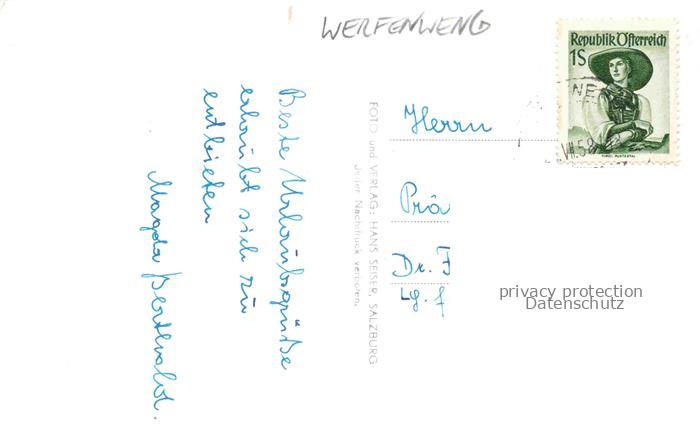 WERFENWENG
Republik Österreich
1S
TIROL PUSTERTAL
VII.58
Beste Urlaubsgrüße
erlaubt sich zu
entbieten
Magda
FOTO und VERLAG: HANS SEISER, SALZBURG
Jeder Nachdruck verboten.
Herrn
Prä
Dr. F
Lg. f
privacy protection
Datenschutz